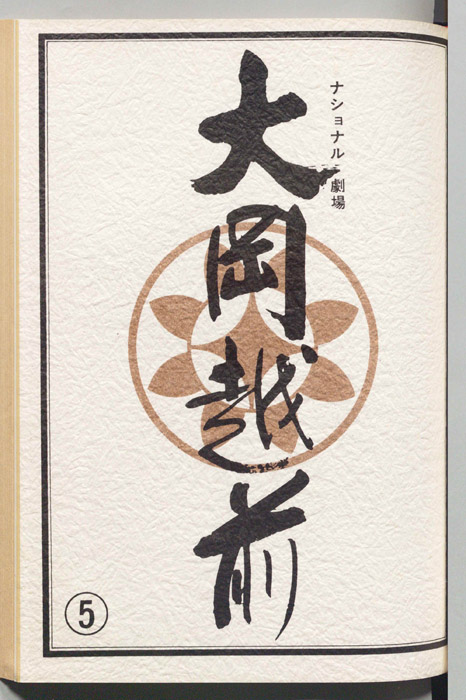 ナショナル劇場
大岡越前
⑤